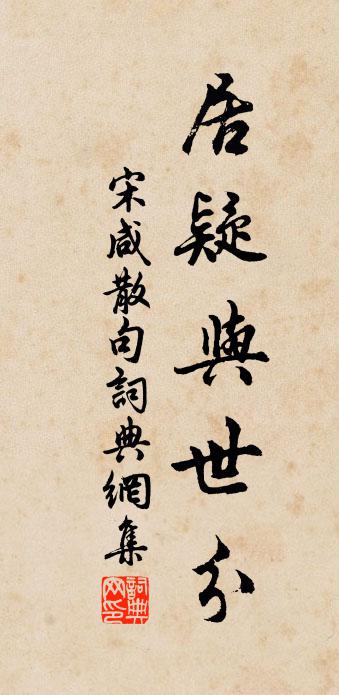 居疑與世分
宋咸散句詞典網集
詞典网印